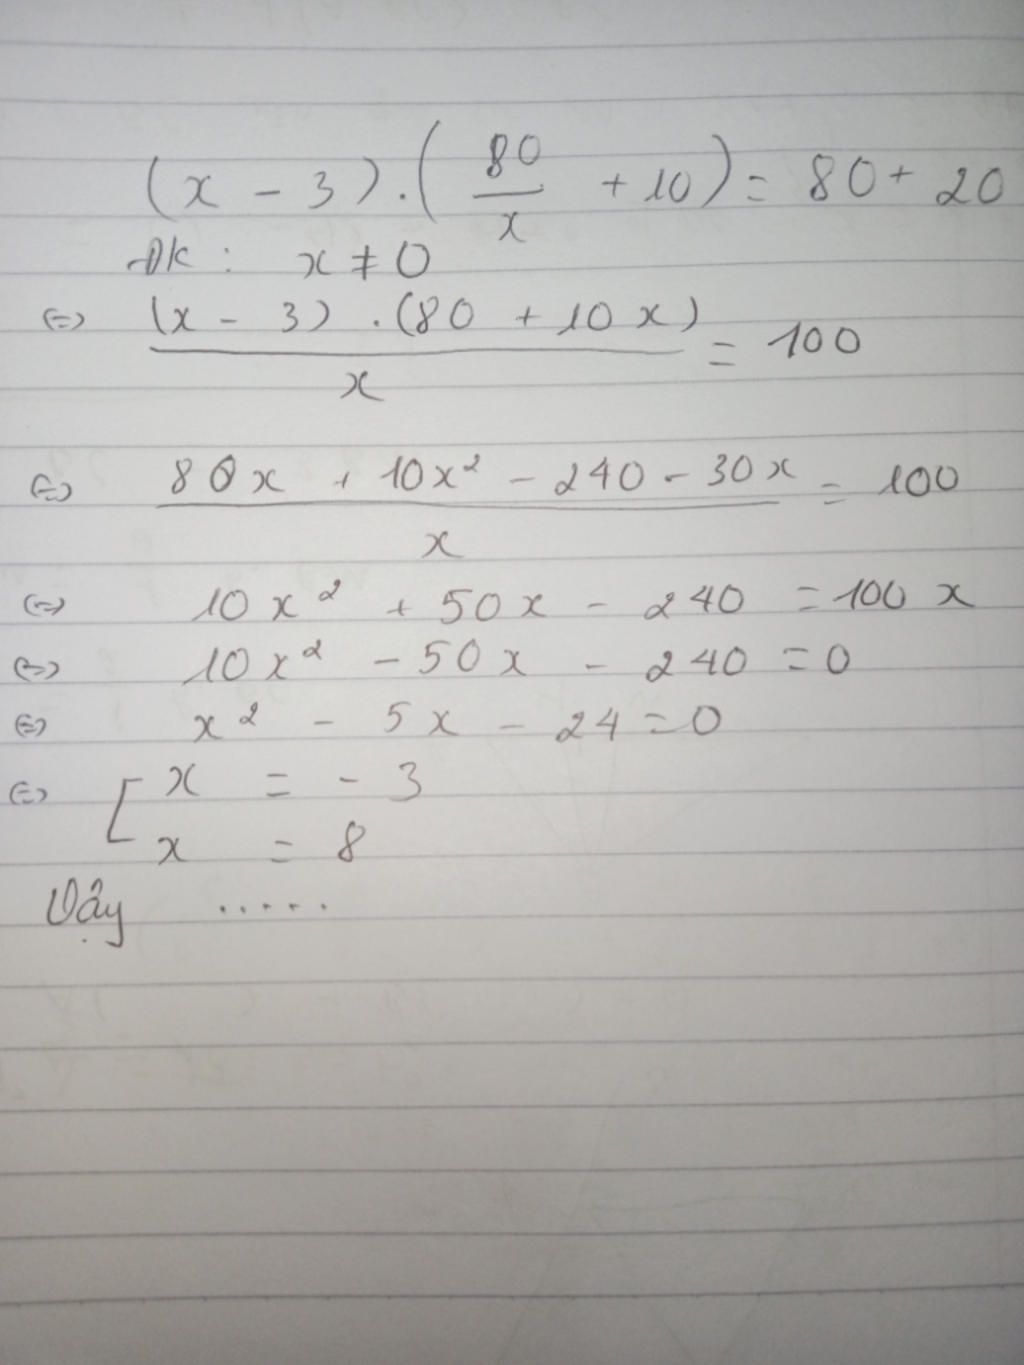 (x - 3).(80/x + 10) = 80 + 20
ĐK: x ≠ 0
⇔ (x - 3).(80 + 10x)/x = 100
⇔ (80x + 10x² - 240 - 30x)/x = 100
⇔ 10x² + 50x - 240 = 100x
⇔ 10x² - 50x - 240 = 0
⇔ x² - 5x - 24 = 0
⇔ [ x = -3
x = 8
Vậy .....